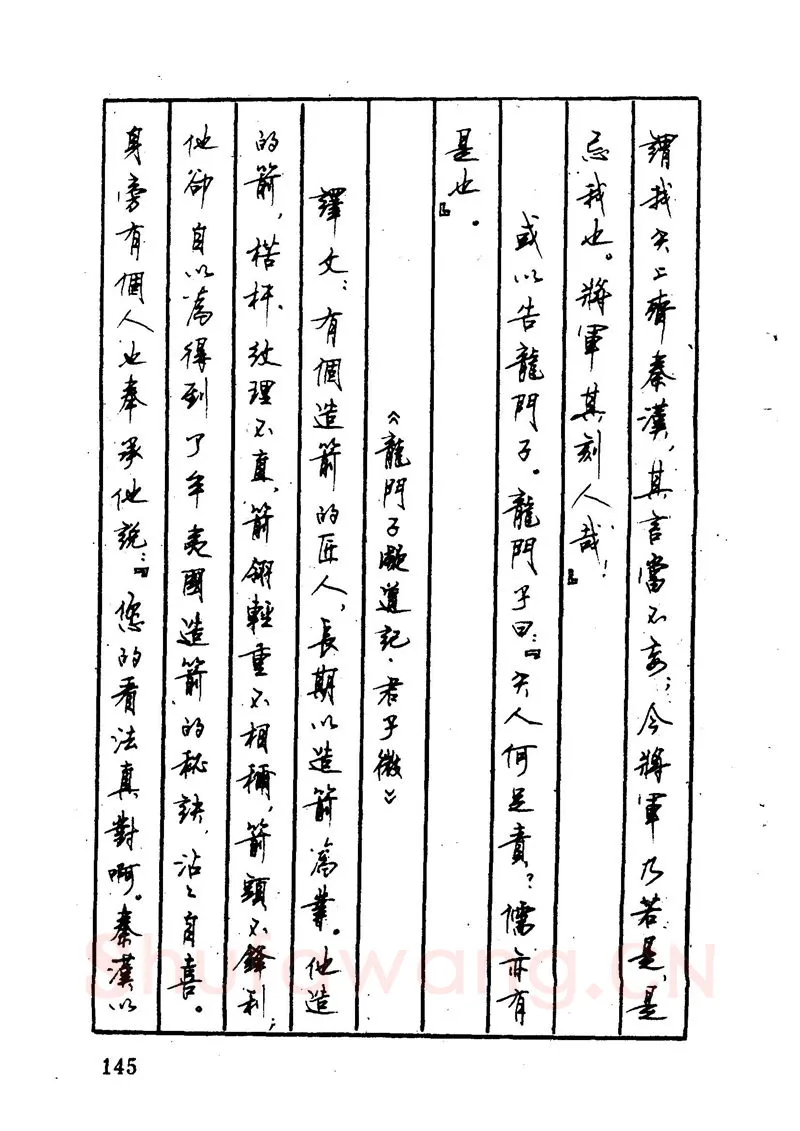 謂我矢上齊秦漢，其言當不妄；今將軍乃若是，是
忌我也。將軍其刻人哉！』
或以告龍門子。龍門子曰：『矢人何足責？儒亦有
是也』。
《龍門子凝道記·君子微》
譯文：有個造箭的匠人，長期以造箭爲業。他造
的箭，楛杆、紋理不直，箭翎輕重不相稱，箭頭不鋒利；
他卻自以爲得到了牟夷國造箭的秘訣，沾沾自喜。
身旁有個人也奉承他說：『您的看法真對啊。秦漢以
145
Shufawang.CN